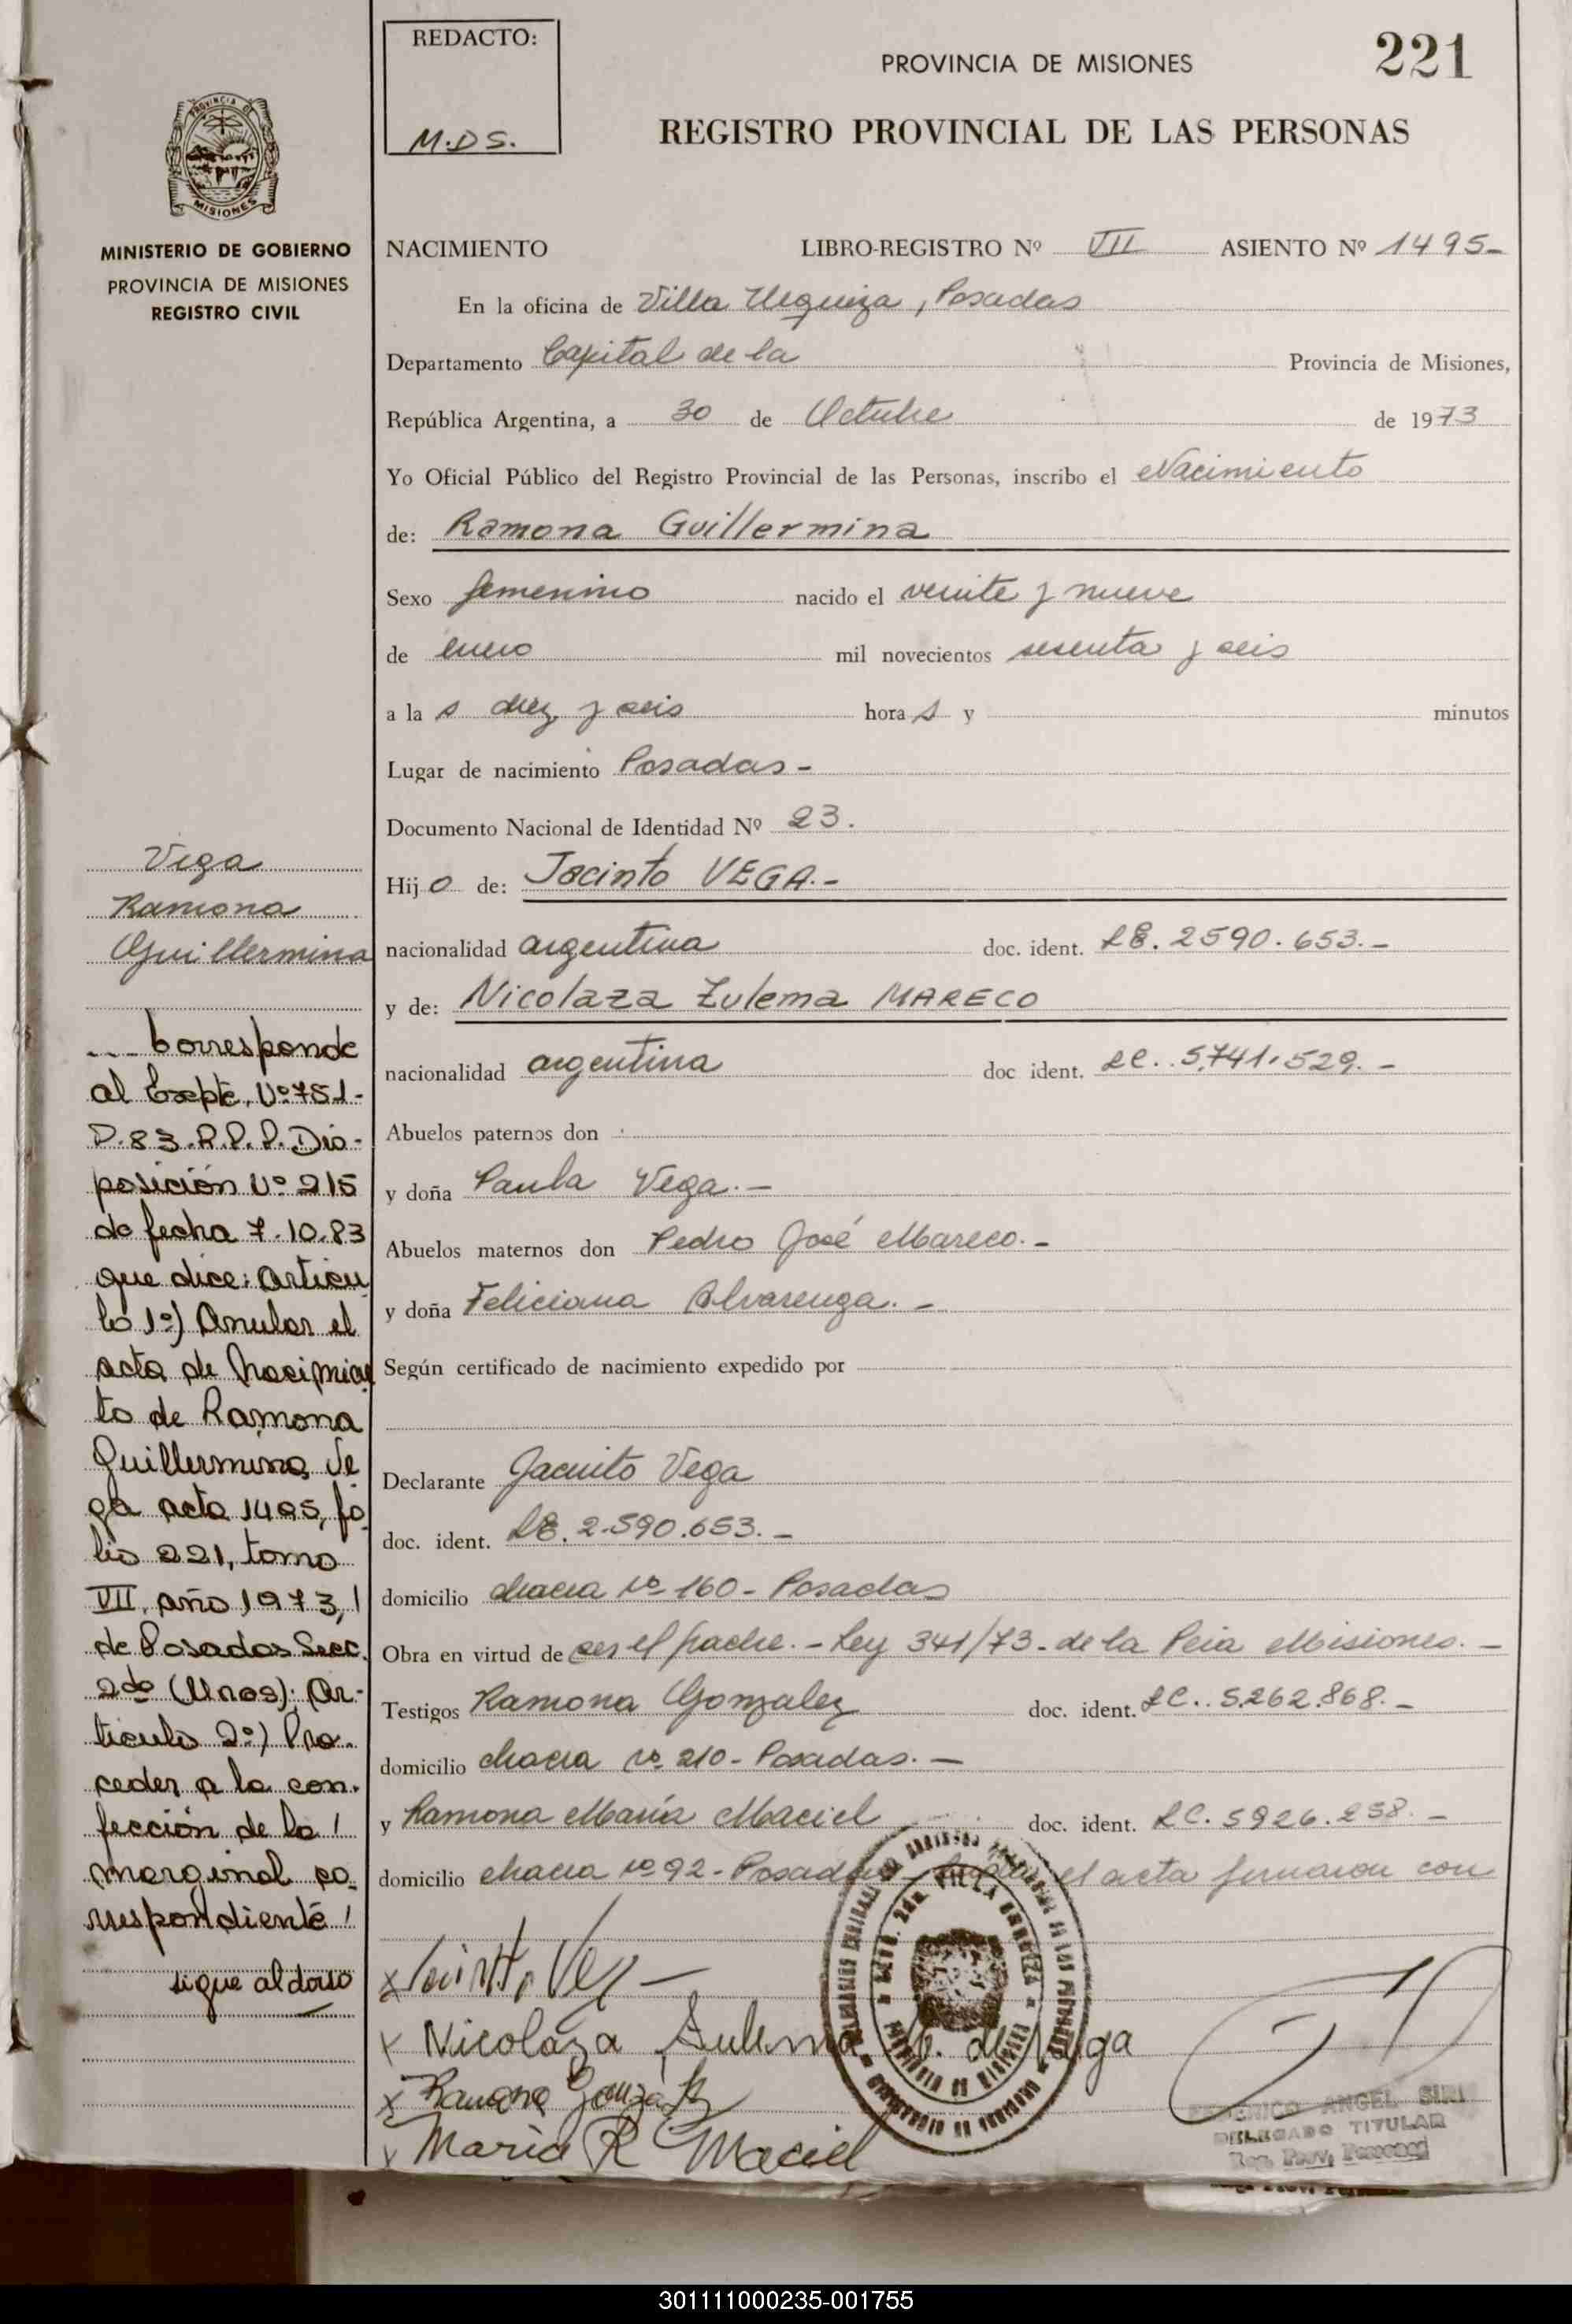 REDACTO:
M.D.S.
PROVINCIA DE MISIONES
221
REGISTRO PROVINCIAL DE LAS PERSONAS
PROVINCIA DE
MISIONES
MINISTERIO DE GOBIERNO
PROVINCIA DE MISIONES
REGISTRO CIVIL
NACIMIENTO LIBRO-REGISTRO Nº VII ASIENTO Nº 1495-
En la oficina de Villa Urquiza, Posadas
Departamento Capital de la Provincia de Misiones,
República Argentina, a 30 de Octubre de 1973
Yo Oficial Público del Registro Provincial de las Personas, inscribo el Nacimiento
de: Ramona Guillermina
Sexo femenino nacido el veinte y nueve
de enero mil novecientos sesenta y seis
a la s diez y seis hora s y minutos
Lugar de nacimiento Posadas-
Documento Nacional de Identidad Nº 23.
Hijo de: Jacinto VEGA.-
nacionalidad argentina doc. ident. LE. 2590.653.-
y de: Nicolaza Zulema MARECO
nacionalidad argentina doc ident. LC. 5.741.529.-
Abuelos paternos don
y doña Paula Vega.-
Abuelos maternos don Pedro José Mareco.-
y doña Feliciana Alvarenga.-
Según certificado de nacimiento expedido por
Declarante Jacinto Vega
doc. ident. LE. 2.590.653.-
domicilio chacra Nº 160- Posadas
Obra en virtud de ser el padre.- Ley 341/73- de la Pcia Misiones.-
Testigos Ramona Gonzalez doc. ident. LC. 5.262.868.-
domicilio chacra Nº 210- Posadas.-
y Ramona María Maciel doc. ident. LC. 5926.238.-
domicilio chacra Nº 92- Posadas el acta firmaron con
Nicolaza Sulema M. de Vega
Ramona Gonzalez
Maria R Maciel
ANGEL SIRI
DELEGADO TITULAR
Reg. Prov. Personas
Vega
Ramona
Guillermina
Corresponde
al Expte. Nº 751-
D.83.R.P.P. Dis-
posición Nº 215
de fecha 7.10.83
que dice: Articu
lo 1º) Anular el
acta de Nacimien
to de Ramona
Guillermina Ve
ga acta 1495, fo
lio 221, tomo
VII, año 1973,
de Posadas Secc.
2da (Unos); Ar-
ticulo 2º) Pro-
ceder a la con-
fección de la
marginal co-
rrespondiente
sigue al dorso
301111000235-001755